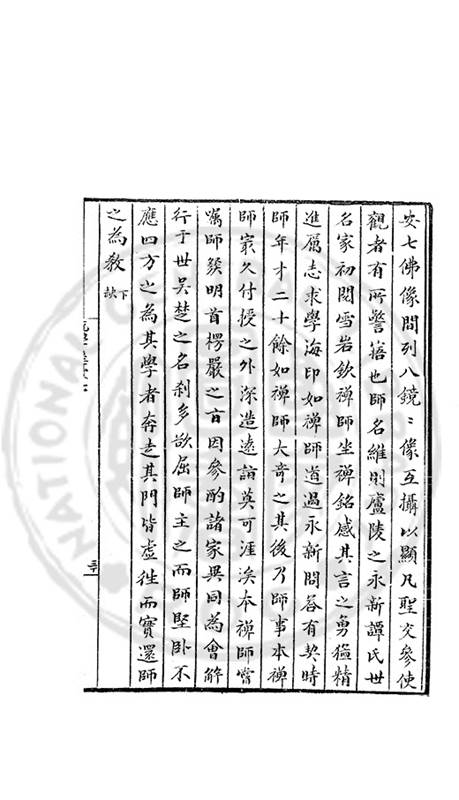 安七佛像間列八鏡〻像互攝以顯凡聖交參使
觀者有所警寤也師名維則廬陵之永新譚氏世
名家初閱雪岩欽禪師坐禪銘感其言之勇猛精
進厲志求學海印如禪師道過永新問答有契時
師年才二十餘如禪師大奇之其後乃師事本禪
師㝡久付授之外深造遠詣莫可涯涘本禪師嘗
囑師發明首楞嚴之旨因參酌諸家異同為會解
行于世吳楚之名刹多欲屈師主之而師堅卧不
應四方之為其學者奔走其門皆虛徃而實還師
之為教下缺
NATION